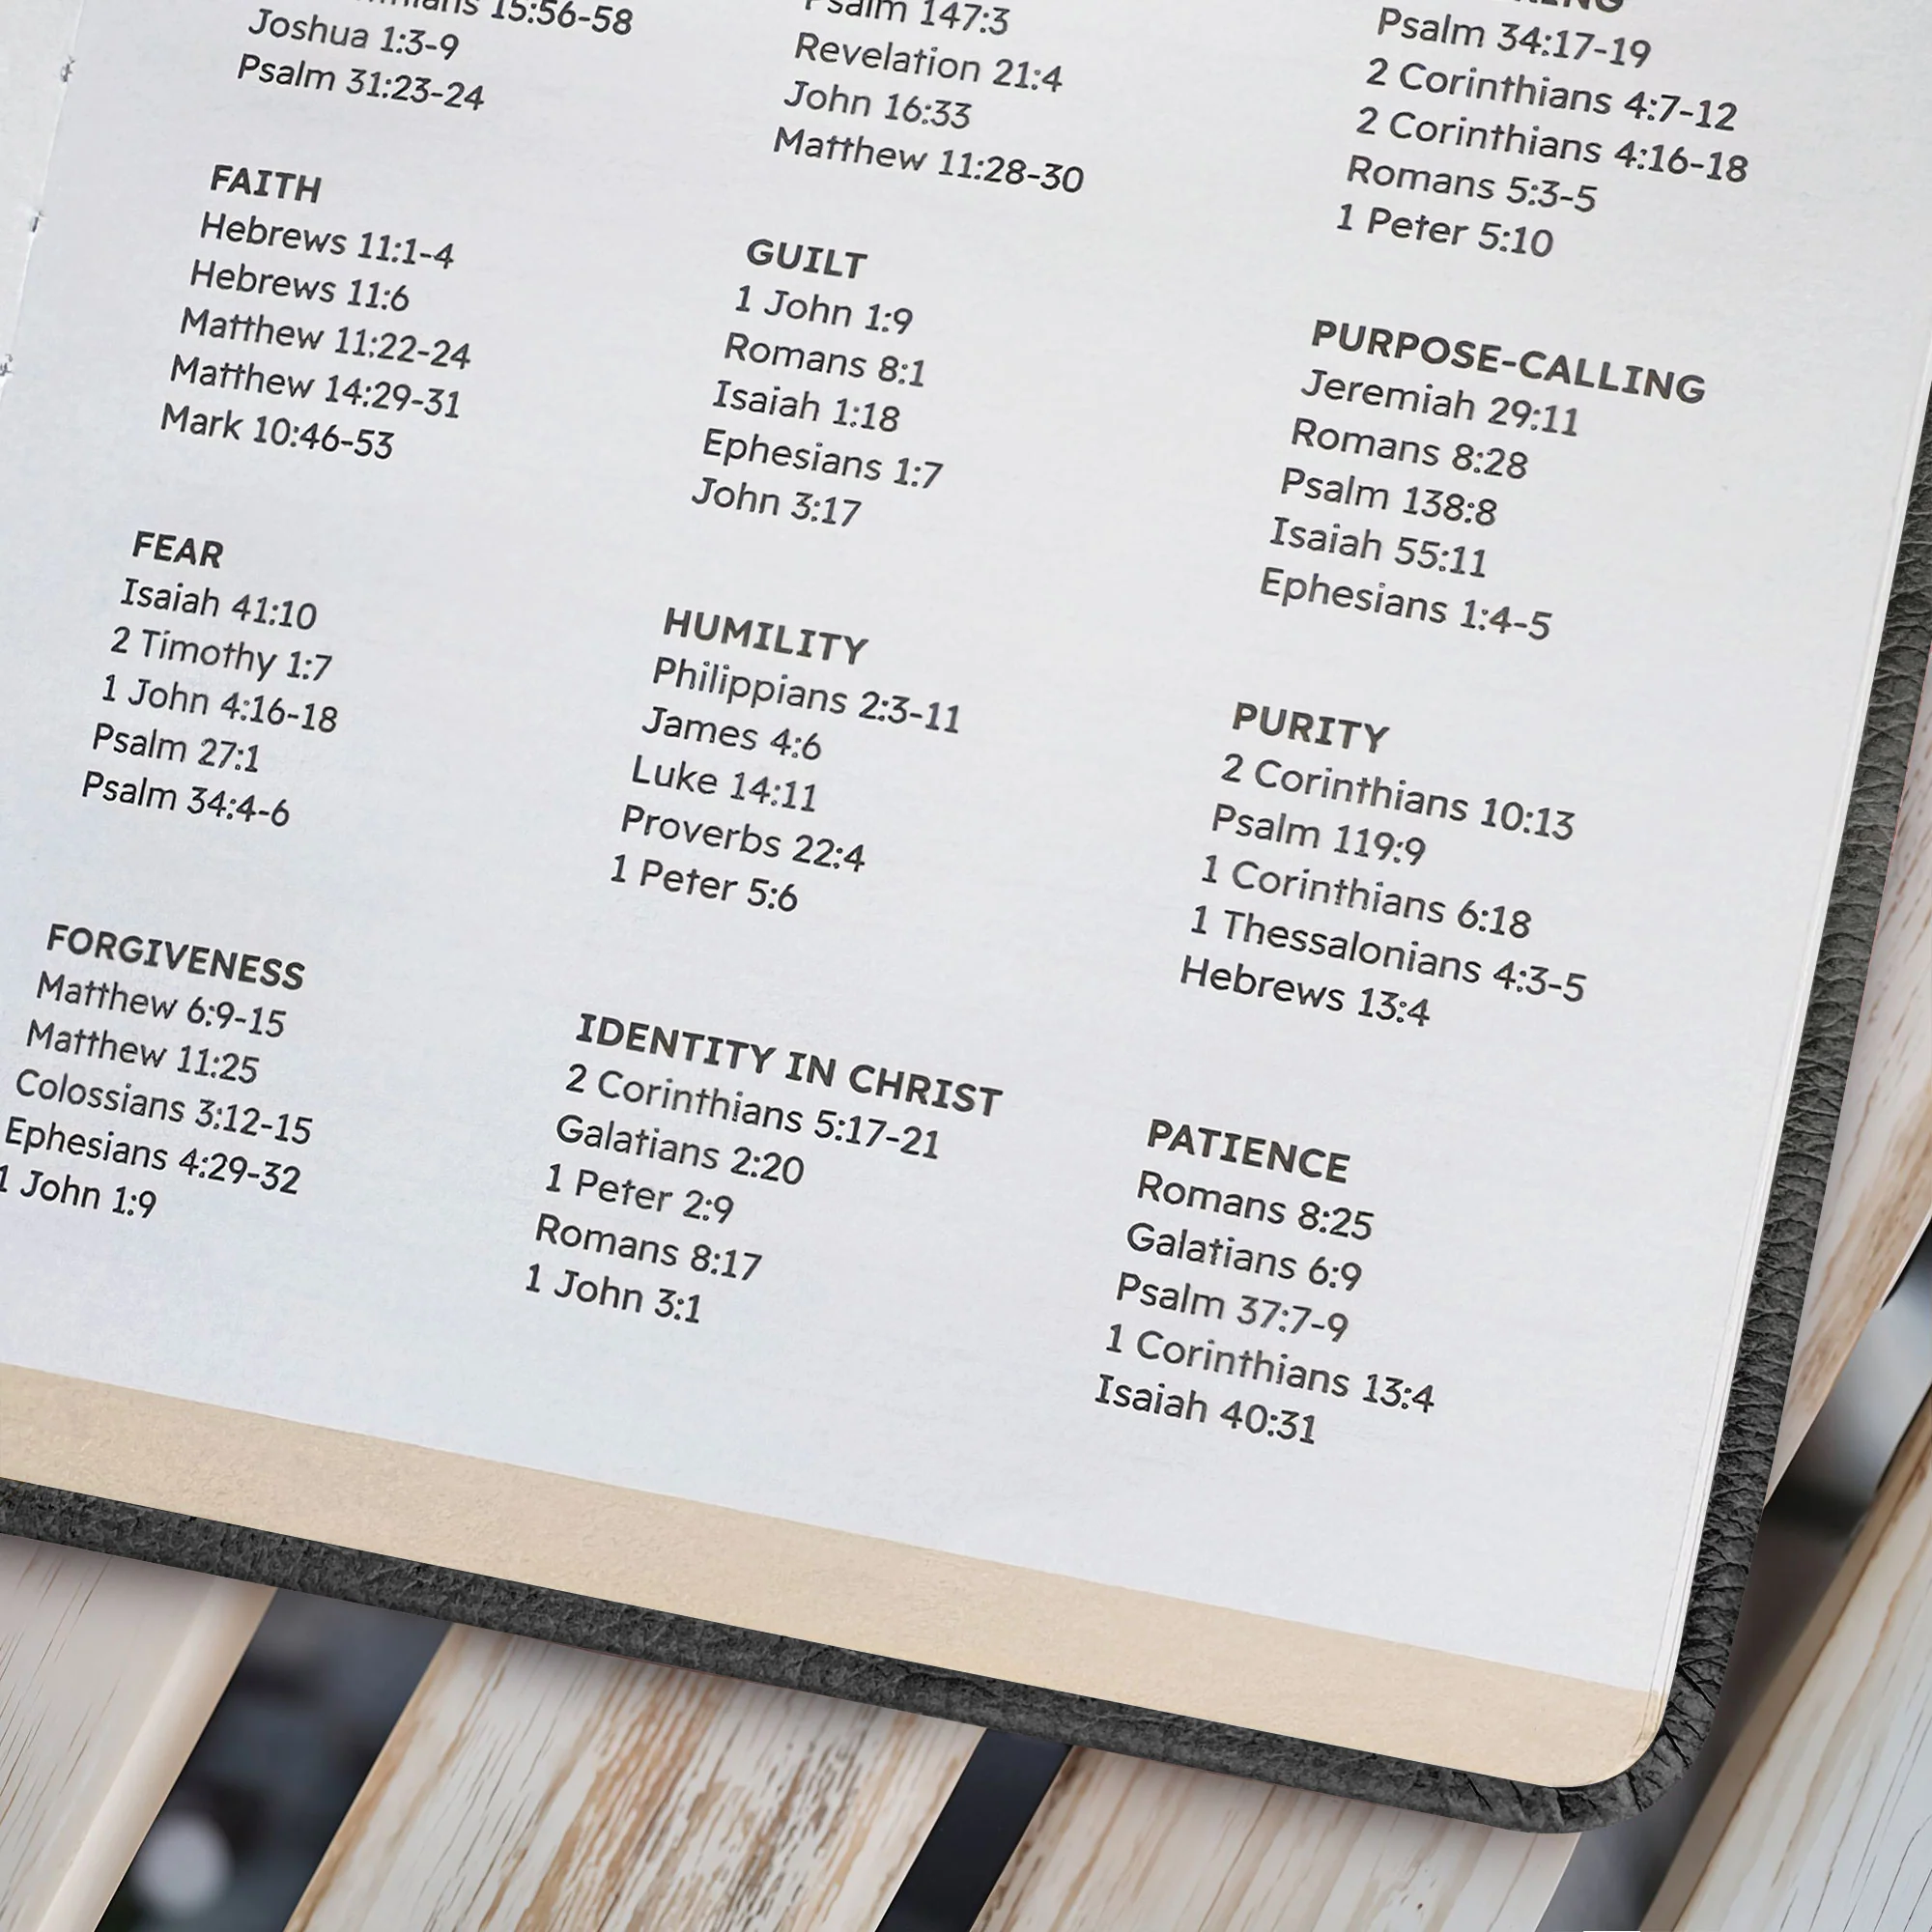 15:56-58
Joshua 1:3-9
Psalm 31:23-24
FAITH
Hebrews 11:1-4
Hebrews 11:6
Matthew 11:22-24
Matthew 14:29-31
Mark 10:46-53
FEAR
Isaiah 41:10
2 Timothy 1:7
1 John 4:16-18
Psalm 27:1
Psalm 34:4-6
FORGIVENESS
Matthew 6:9-15
Matthew 11:25
Colossians 3:12-15
Ephesians 4:29-32
1 John 1:9
Psalm 147:3
Revelation 21:4
John 16:33
Matthew 11:28-30
GUILT
1 John 1:9
Romans 8:1
Isaiah 1:18
Ephesians 1:7
John 3:17
HUMILITY
Philippians 2:3-11
James 4:6
Luke 14:11
Proverbs 22:4
1 Peter 5:6
IDENTITY IN CHRIST
2 Corinthians 5:17-21
Galatians 2:20
1 Peter 2:9
Romans 8:17
1 John 3:1
Psalm 34:17-19
2 Corinthians 4:7-12
2 Corinthians 4:16-18
Romans 5:3-5
1 Peter 5:10
PURPOSE-CALLING
Jeremiah 29:11
Romans 8:28
Psalm 138:8
Isaiah 55:11
Ephesians 1:4-5
PURITY
2 Corinthians 10:13
Psalm 119:9
1 Corinthians 6:18
1 Thessalonians 4:3-5
Hebrews 13:4
PATIENCE
Romans 8:25
Galatians 6:9
Psalm 37:7-9
1 Corinthians 13:4
Isaiah 40:31